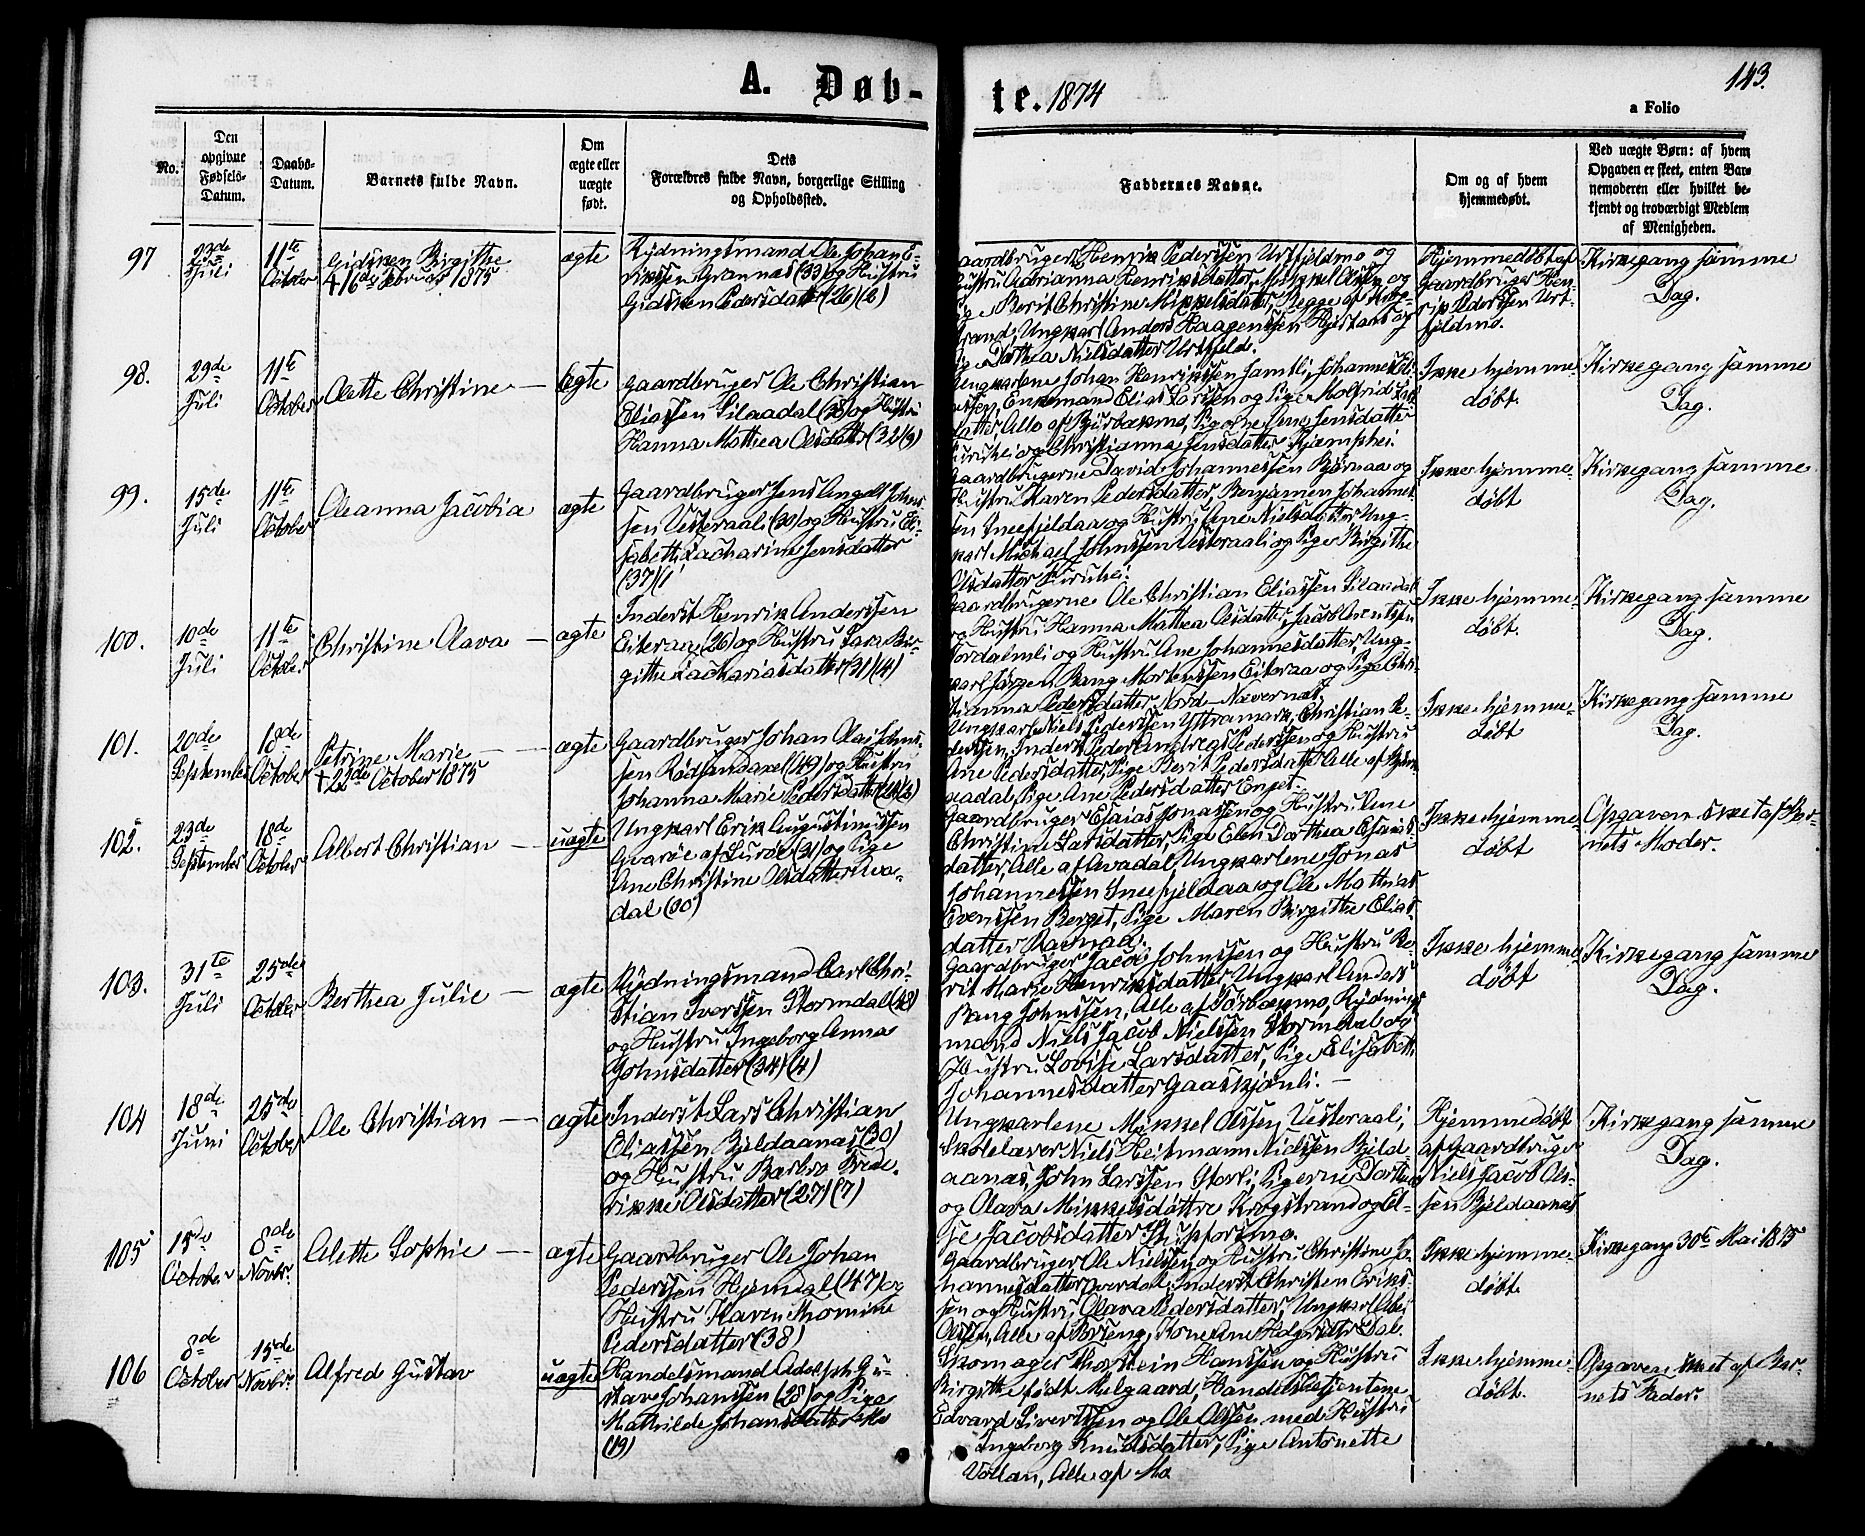 A. Døb-
te. 1874
143.
a Folio
No.
Den opgivne Fødsels-Datum.
Daabs-Datum.
Barnets fulde Navn.
Om ægte eller uægte født.
Dets Forældres fulde Navn, borgerlige Stilling og Opholdssted.
Faddernes Navne.
Om og af hvem hjemmedøbt.
Ved uægte Børn: af hvem Opgaven er skeet, enten Barnemoderen eller hvilket bekjendt og troværdigt Medlem af Menigheden.
97
23de Juli
11te October
Gidsken Birgithe
† 16de Februar 1875
ægte
Rydningsmand Ole Johan E-
rikssen Grannæs (33) og Hustru
Gidsken Pedersdatter (26) (6)
Gaardbruger Henrik Pederssen Urtfjeldmo og
Hustru Adrianna Henriksdatter, Mikkel Olsen og
Pige Berit Christine Mikkelsdatter, Begge af Krog-
strand, Ungkarl Anders Haagenssen Hjertaas og
Pige Dorthea Nielsdatter Urtfjeld.
Hjemmedøbt af
Gaardbruger Hen-
rik Pederssen Urt-
fjeldmo.
Kirkegang samme
Dag.
98.
29de Juli
11te October
Olette Christine
ægte
Gaardbruger Ole Christian
Eliassen Silaadal (28) og Hustru
Hanna Mathea Olsdatter (32) (3)
Ungkarlene Johan Henrikssen Jamtli, Johannes Eli-
assen, Enkemand Elias Larssen og Pige Molfrid Lars-
datter, Alle af Bjurbækmo, Pigerne Ane Jensdatter
og Christianna Jensdatter Kjæmphei.
Ikke hjemme-
døbt.
Kirkegang samme
Dag.
99.
15de Juli
11te October
Oleanna Jacobia
ægte
Gaardbruger Jens Angell Johns-
sen Vesteraali (30) og Hustru Eli-
sabeth Zacharine Jensdatter
(37) (1
Gaardbrugerne David Johannessen Bjørnaa og
Hustru Karen Pedersdatter, Benjamen Johannes-
sen Sneefjeldaa og Hustru Ane Nielsdatter, Ung-
karl Michael Johnssen Vesteraali og Pige Birgithe
Olsdatter
Ikke hjemme-
døbt
Kirkegang samme
Dag.
100.
10de Juli
11te October
Christine Olava
ægte
Inderst Henrik Anderssen
Eiteraa (26) og Hustru Lava Bir-
githe Zachariasdatter (31) (4)
Gaardbrugerne Ole Christian Eliassen Silaadal
og Hustru Hanna Mathea Olsdatter, Jacob Arentssen
Tordalmli og Hustru Ane Johannesdatter, Ung-
karl Jørgen Bang Mortenssen Eiteraa og Pige Chri-
stianna Pedersdatter Nord-Nævernæs.
Ikke hjemme-
døbt.
Kirkegang samme
Dag.
101.
20de September
18de October
Petrine Marie
† 22de October 1875
ægte
Gaardbruger Johan Olai Johns-
sen Rødsandaxel (49) og Hustru
Johanna Marie Pedersdatter
Ungkarl Niels Pederssen Yttramark, Christian Pe-
derssen, Inderst Peder Andreas Pederssen og Hustru
Ane Pedersdatter, Pige Berit Pedersdatter Alle af
Pige Ane Pedersdatter Enget.
Ikke hjemme-
døbt
Kirkegang samme
Dag.
102.
23de September
18de October
Albert Christian
uægte
Ungkarl Erik Augustinussen
Qvarøe af Lurøe (31) og Pige
Ane Christine Olsdatter Ava-
dal (30)
Gaardbruger Esaias Jonassen og Hustru Ane
Christine Larsdatter, Pige Elen Dorthea Esaias-
datter, Alle af Avadal, Ungkarlene Jonas
Johannessen Sneefjeldaa og Ole Mathias
Evenssen Berget, Pige Maren Birgithe Elias-
datter Ravnaa.
Ikke hjemme-
døbt
Opgaven skeet af Bar-
nets Moder.
103.
31te Juli
25de October
Berthea Julie
ægte
Rydningsmand Carl Chri-
stian Iverssen Stormdal (43)
og Hustru Ingeborg Anna
Johnsdatter (34) (4)
Gaardbruger Jacob Johnssen og Hustru Be-
rit Marie Henriksdatter, Ungkarl Anders
Bang Johnssen, Alle af Tørbækmo, Rydnings-
mand Niels Jacob Nielssen Stormdal og
Hustru Lovise Larsdatter, Pige Elisabeth
Johannesdatter Gaaskjønli.
Ikke hjemme-
døbt
Kirkegang samme
Dag.
104
18de Juni
25de October
Ole Christian
ægte
Inderst Lars Christian
Eliassen Bjeldaanæs (30)
og Hustru Barbro Frede-
rikke Olsdatter (27) (7)
Ungkarlene Mikkel Olssen Vesteraali,
Skolelærer Niels Heitmann Nielssen Bjeld-
aanæs, John Larssen Storli, Pigerne Dorthea
og Olava Mikkelsdøttre Krogstrand og El-
se Jacobsdatter Skupforsmo.
Hjemmedøbt
af Gaardbruger
Niels Jacob Ols-
sen Bjeldaanæs
Kirkegang samme
Dag.
105
15de October
8de Novbr.
Olette Sophie
ægte
Gaardbruger Ole Johan
Pederssen Hjemdal (47) og
Hustru Karen Thomine
Pedersdatter (38)
Gaardbruger Ole Nielssen og Hustru Christine Jo-
hannesdatter, Inderst Christen Eriks-
sen og Hustru Olava Pedersdatter, Ungkarl
Olssen, Alle af Børeng, Kone Ane
Ikke hjemme-
døbt.
Kirkegang 30te Mai 1875
106
8de October
15de Novbr.
Alfred Gustav
uægte
Handelsmand Adolph Gu-
stav Johanssen (28) og Pige
Mathilde Johansdatter Mo
(19)
Skomager Thorstein Hanssen og Hustru
Birgithe født Melgaard, Handelsbetjentene
Edvard Sivertssen og Ole Olssen med Hustru
Ingeborg Knudsdatter, Pige Antonette
Vollan, Alle af Mo
Ikke hjemme-
døbt.
Opgaven skeet af Bar-
nets Fader.